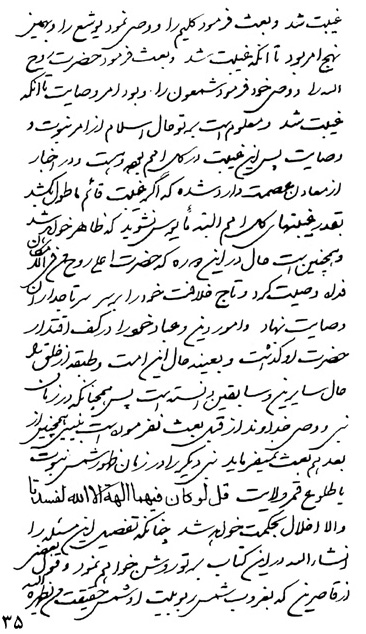 غیبت شد و بعث فرمود کلیم را و وصی نمود یوشع را و بهمین
نهج امر بود تا آنکه غیبت شد و بعث فرمود حضرت روح
الله را و وصی خود فرمود شمعون را و بود امر وصایت تا آنکه
غیبت شد و معلوم است بر تو حال اسلام از امر نبوت و
وصایت پس این غیبت در کل امم بوده و هست و در اخبار
از معادن عصمت وارد شده که اگر غیبت قائم ما طول بکشد
بقدر غیبتهای کل امم البته مأیوس نشوید که ظاهر خواهد شد
و همچنین است حال در این که حضرت اعلی روح من فی الملک
فداه وصیت کرد و تاج خلافت خود را بر سر تاجدار
وصایت نهاد و امور دین و عباد خود را در کف اقتدار
حضرت او گذاشت و بعینه حال این امت و طبقه از خلق
حال سایرین و سابقین است پس همچنانکه در زمان
نبی و وصی خداوند از قبل بعث نفرموده است نبیی همچنین از
بعد هم بعث نمیفرماید نبی دیگر را در زمان ظهور شمس نبوت
یا طلوع قمر ولایت قل لو کان فیهما الهة الا الله لفسدتا
والا اخلال بحکمت خواهد شد چنانکه تفصیل این مسئله را
انشاء الله در این کتاب بر تو روشن خواهم نمود و قول بعضی
از قاصرین که بغروب شمس ربوبیت او شمس حقیقت من یظهره الله
۳۵